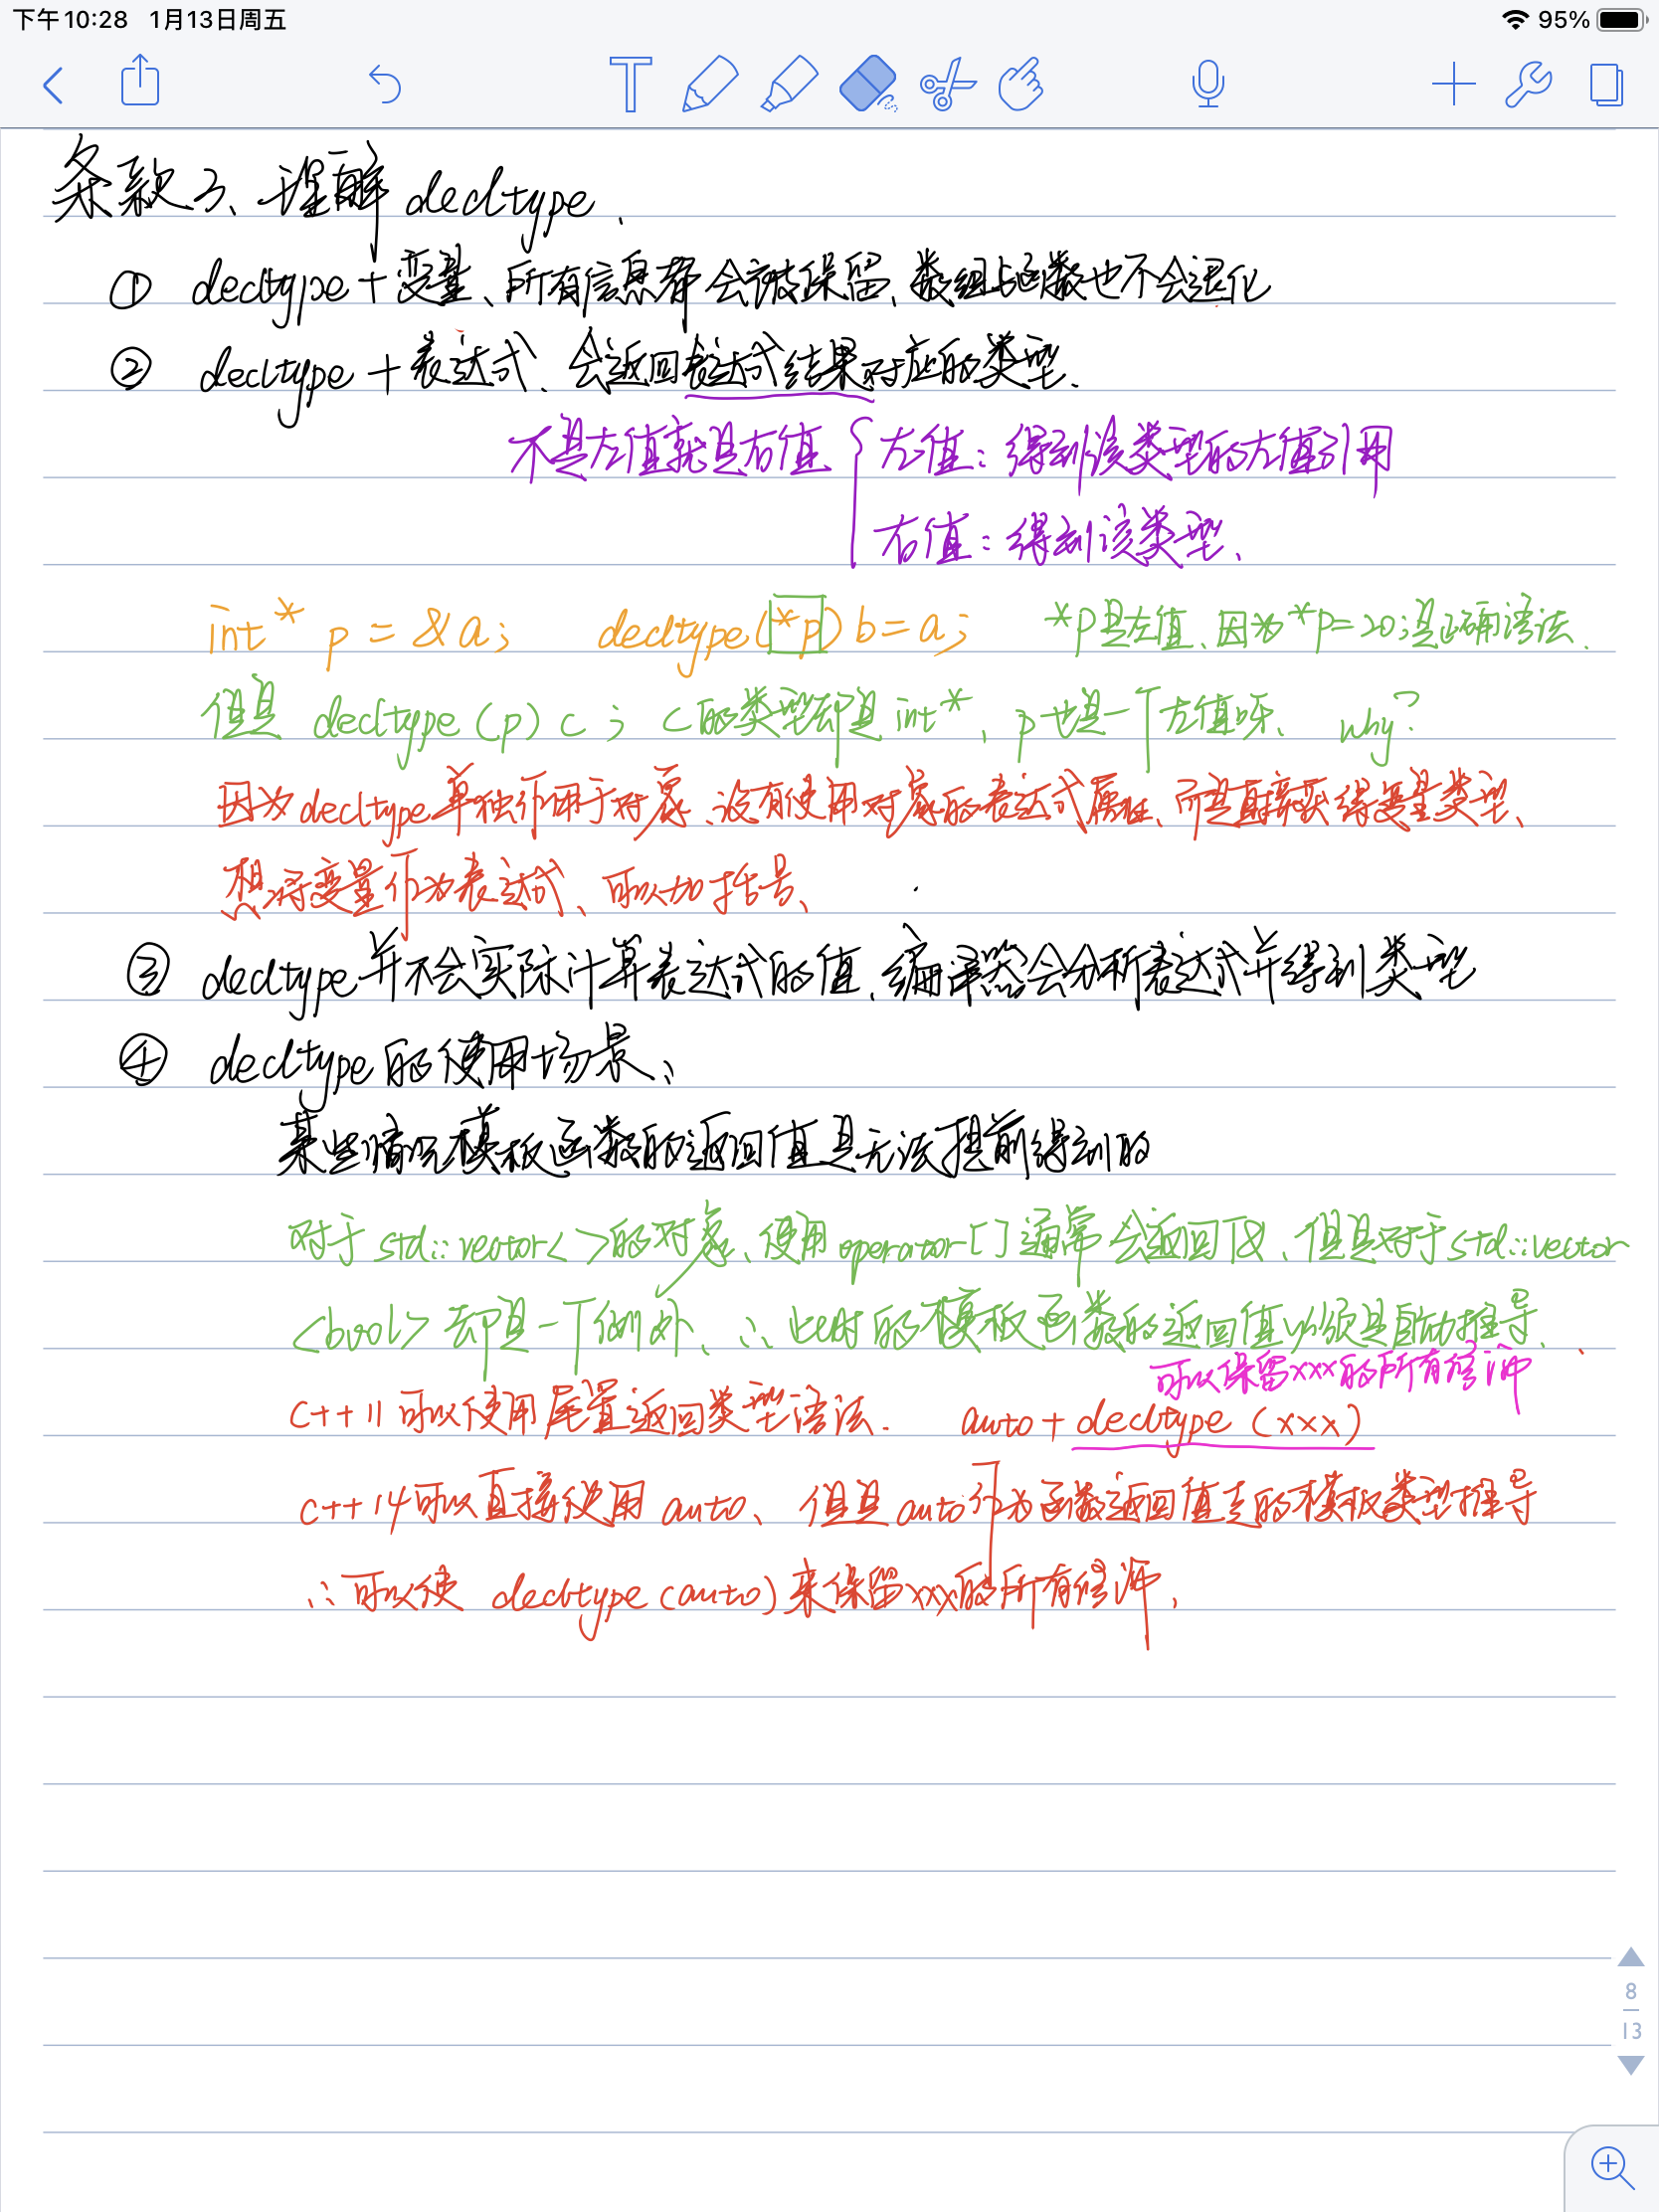 下午10:28 1月13日周五
95%
条款3、理解decltype.
① decltype+变量、所有信息都会被保留、数组与函数也不会退化
② decltype+表达式、会返回表达式结果对应的类型.
不是左值就是右值 { 左值：得到该类型的左值引用
右值：得到该类型、
int* p = &a; decltype(*p) b=a; *p是左值、因为*p=20;是正确语法.
但是 decltype(p) c; c的类型却是int*、p也是一个左值呀、why?
因为decltype单独作用于对象、没有使用对象的表达式属性、而是直接获得变量类型、
想将变量作为表达式、可以加括号、
③ decltype并不会实际计算表达式的值、编译器会分析表达式并得到类型
④ decltype的使用场景、
某些情况模板函数的返回值是无法提前得到的
对于std::vector<>的对象、使用operator[]通常会返回T&、但是对于std::vector
<bool>却是一个例外、∴此时的模板函数的返回值必须是自动推导、
可以保留xxx的所有修饰
C++11可以使用尾置返回类型语法. auto+decltype(xxx)
C++14可以直接使用auto、但是auto作为函数返回值走的模板类型推导
∴可以使 decltype(auto)来保留xxx的所有修饰.
8
13